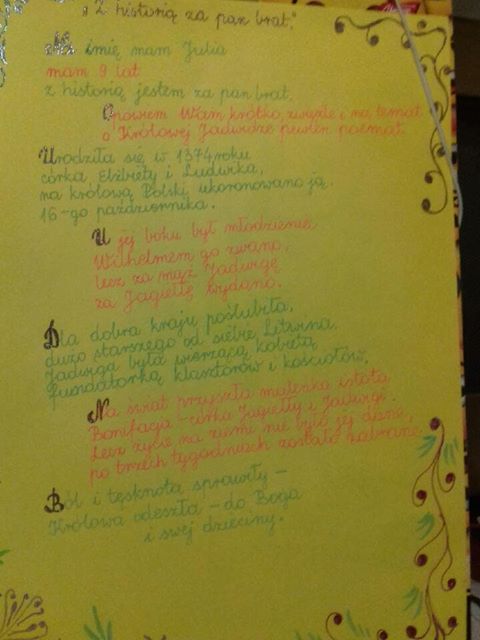 „Z historią za pan brat."
Na imię mam Julia
mam 9 lat
z historią jestem za pan brat.
Opowiem Wam krótko, zwięźle i na temat
o Królowej Jadwidze pewien poemat.
Urodziła się w 1374 roku
córka Elżbiety i Ludwika,
na królową Polski ukoronowano ją.
16-go października.
U jej boku był młodzieniec,
Wilhelmem go zwano,
lecz za mąż Jadwigę
za Jagiełłę wydano.
Dla dobra kraju poślubiła,
dużo starszego od siebie Litwina.
Jadwiga była wierzącą kobietą,
fundatorką klasztorów i kościołów,
Na świat przyszła maleńka istota
Bonifacja - córka Jagiełły i Jadwigi.
Lecz życie na ziemi nie było jej dane,
po trzech tygodniach zostało zabrane.
Ból i tęsknota sprawiły -
Królowa odeszła - do Boga
i swej dzieciny.